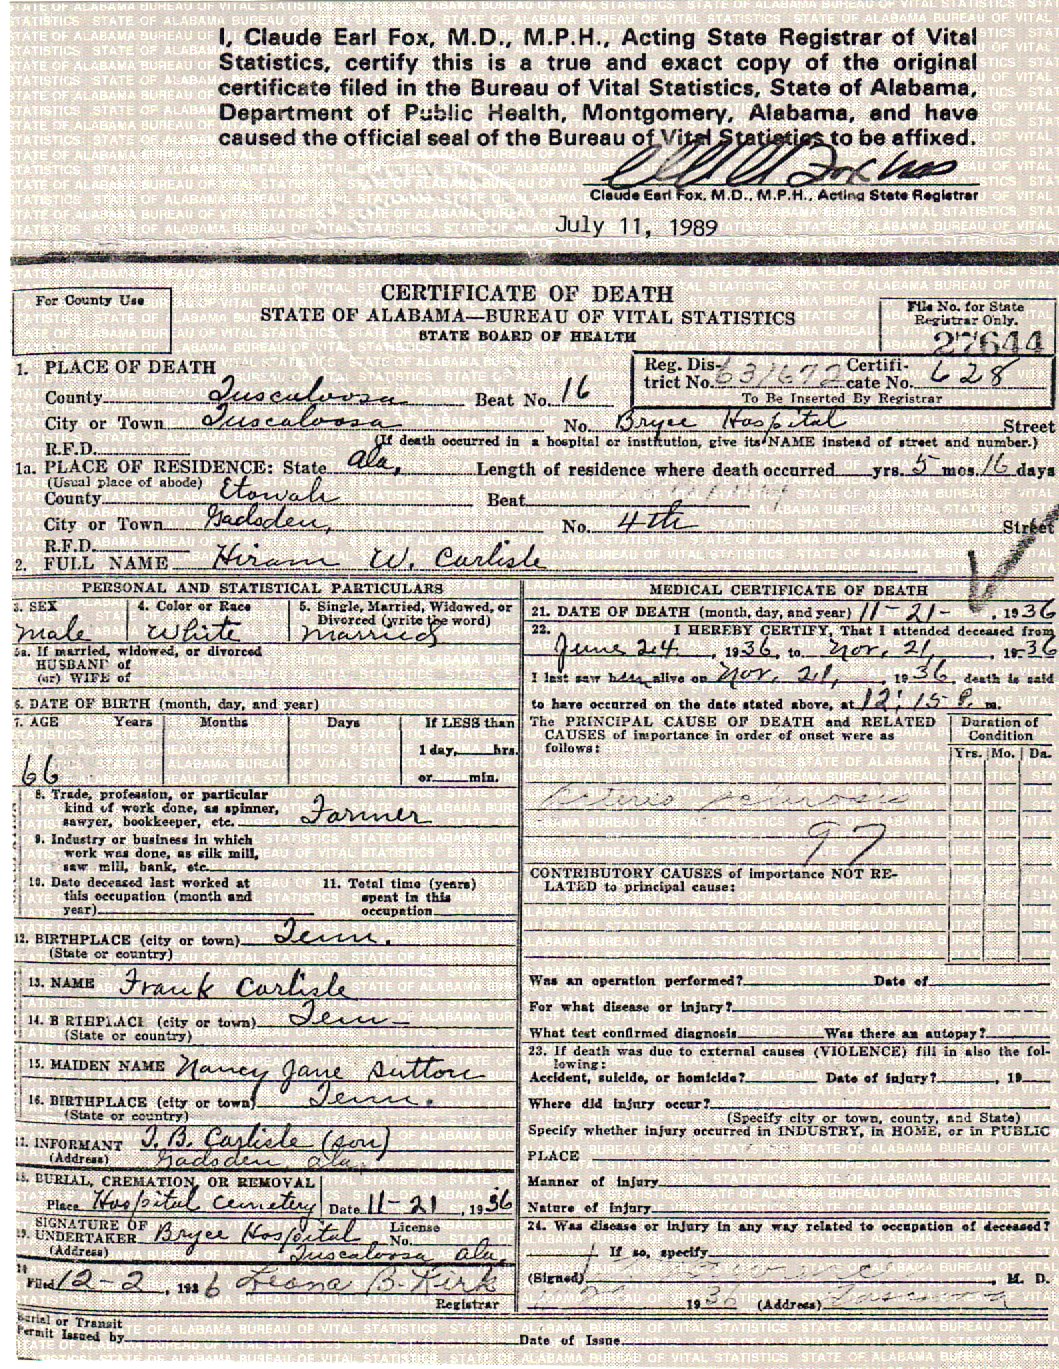 I, Claude Earl Fox, M.D., M.P.H., Acting State Registrar of Vital
Statistics, certify this is a true and exact copy of the original
certificate filed in the Bureau of Vital Statistics, State of Alabama,
Department of Public Health, Montgomery, Alabama, and have
caused the official seal of the Bureau of Vital Statistics to be affixed.
Claude Earl Fox, M.D., M.P.H., Acting State Registrar
July 11, 1989
For County Use
CERTIFICATE OF DEATH
STATE OF ALABAMA—BUREAU OF VITAL STATISTICS
STATE BOARD OF HEALTH
File No. for State
Registrar Only.
27644
1. PLACE OF DEATH
Reg. District No. 631672 Certificate No. 628
To Be Inserted By Registrar
County Tuscaloosa Beat No. 16
City or Town Tuscaloosa No. Bryce Hospital Street
R.F.D. (If death occurred in a hospital or institution, give its NAME instead of street and number.)
1a. PLACE OF RESIDENCE: State Ala. Length of residence where death occurred yrs. 5 mos. 16 days
(Usual place of abode)
County Etowah Beat
City or Town Gadsden, No. 4th Street
R.F.D.
2. FULL NAME Hiram W. Carlisle
PERSONAL AND STATISTICAL PARTICULARS
3. SEX male
4. Color or Race White
5. Single, Married, Widowed, or
Divorced (write the word)
married
5a. If married, widowed, or divorced
HUSBAND of
(or) WIFE of
6. DATE OF BIRTH (month, day, and year)
7. AGE Years Months Days If LESS than
1 day, hrs.
66 or min.
8. Trade, profession, or particular
kind of work done, as spinner,
sawyer, bookkeeper, etc. Farmer
9. Industry or business in which
work was done, as silk mill,
saw mill, bank, etc.
10. Date deceased last worked at
this occupation (month and
year)
11. Total time (years)
spent in this
occupation
12. BIRTHPLACE (city or town) Tenn.
(State or country)
13. NAME Frank Carlisle
14. B RTHPLACE (city or town) Tenn
(State or country)
15. MAIDEN NAME Nancy Jane Sutton
16. BIRTHPLACE (city or town) Tenn.
(State or country)
17. INFORMANT J. B. Carlisle (son)
(Address) Gadsden, Ala.
18. BURIAL, CREMATION, OR REMOVAL
Place Hospital cemetery Date 11-21, 1936
19. SIGNATURE OF
UNDERTAKER Bryce Hospital License No.
(Address) Tuscaloosa Ala
Filed 12-2, 1936 Leona B. Kirk
Registrar
Burial or Transit
Permit Issued by Date of Issue
MEDICAL CERTIFICATE OF DEATH
21. DATE OF DEATH (month, day, and year) 11-21-, 1936
22. I HEREBY CERTIFY, That I attended deceased from
June 24, 1936, to Nov. 21, 1936
I last saw him alive on Nov. 21, 1936, death is said
to have occurred on the date stated above, at 12:15 P. m.
The PRINCIPAL CAUSE OF DEATH and RELATED
CAUSES of importance in order of onset were as
follows:
Duration of
Condition
Yrs. Mo. Da.
97
CONTRIBUTORY CAUSES of importance NOT RE-
LATED to principal cause:
Was an operation performed? Date of
For what disease or injury?
What test confirmed diagnosis Was there an autopsy?
23. If death was due to external causes (VIOLENCE) fill in also the fol-
lowing:
Accident, suicide, or homicide? Date of injury? , 19
Where did injury occur?
(Specify city or town, county, and State)
Specify whether injury occurred in INDUSTRY, in HOME, or in PUBLIC
PLACE
Manner of injury
Nature of injury
24. Was disease or injury in any way related to occupation of deceased?
If so, specify
(Signed) , M. D.
1936 (Address)